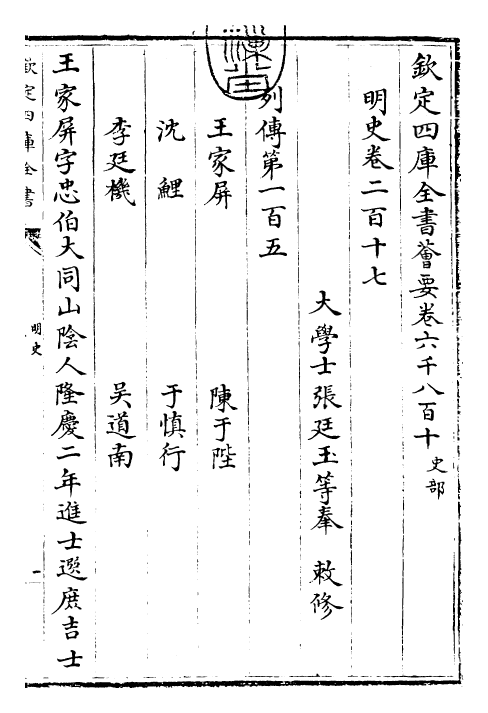 欽定四庫全書薈要卷六千八百十 史部
明史卷二百十七
大學士張廷玉等奉 敕修
列傳第一百五
王家屏 陳于陛
沈鯉 于慎行
李廷機 吳道南
王家屏字忠伯大同山陰人隆慶二年進士選庶吉士
欽定四庫全書
明史
一